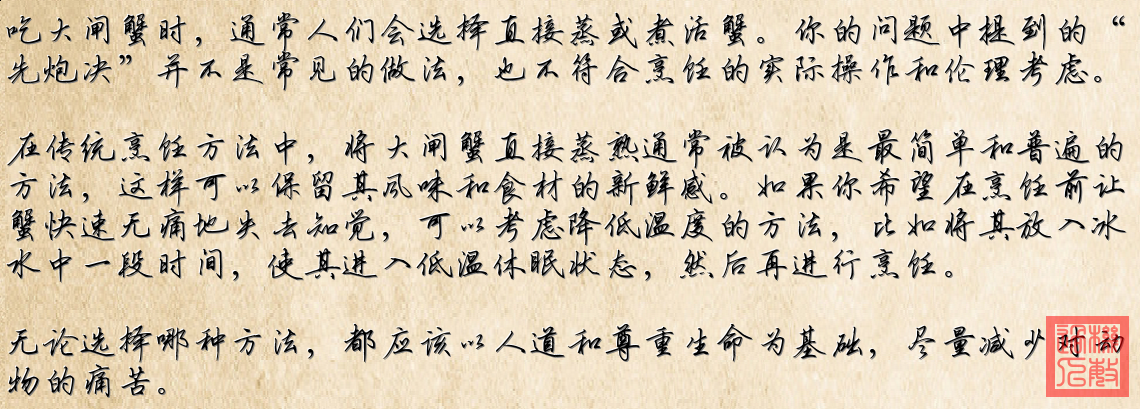 吃大闸蟹时，通常人们会选择直接蒸或煮活蟹。你的问题中提到的“
先炮决”并不是常见的做法，也不符合烹饪的实际操作和伦理考虑。
在传统烹饪方法中，将大闸蟹直接蒸熟通常被认为是最简单和普遍的
方法，这样可以保留其风味和食材的新鲜感。如果你希望在烹饪前让
蟹快速无痛地失去知觉，可以考虑降低温度的方法，比如将其放入冰
水中一段时间，使其进入低温休眠状态，然后再进行烹饪。
无论选择哪种方法，都应该以人道和尊重生命为基础，尽量减少对动
物的痛苦。